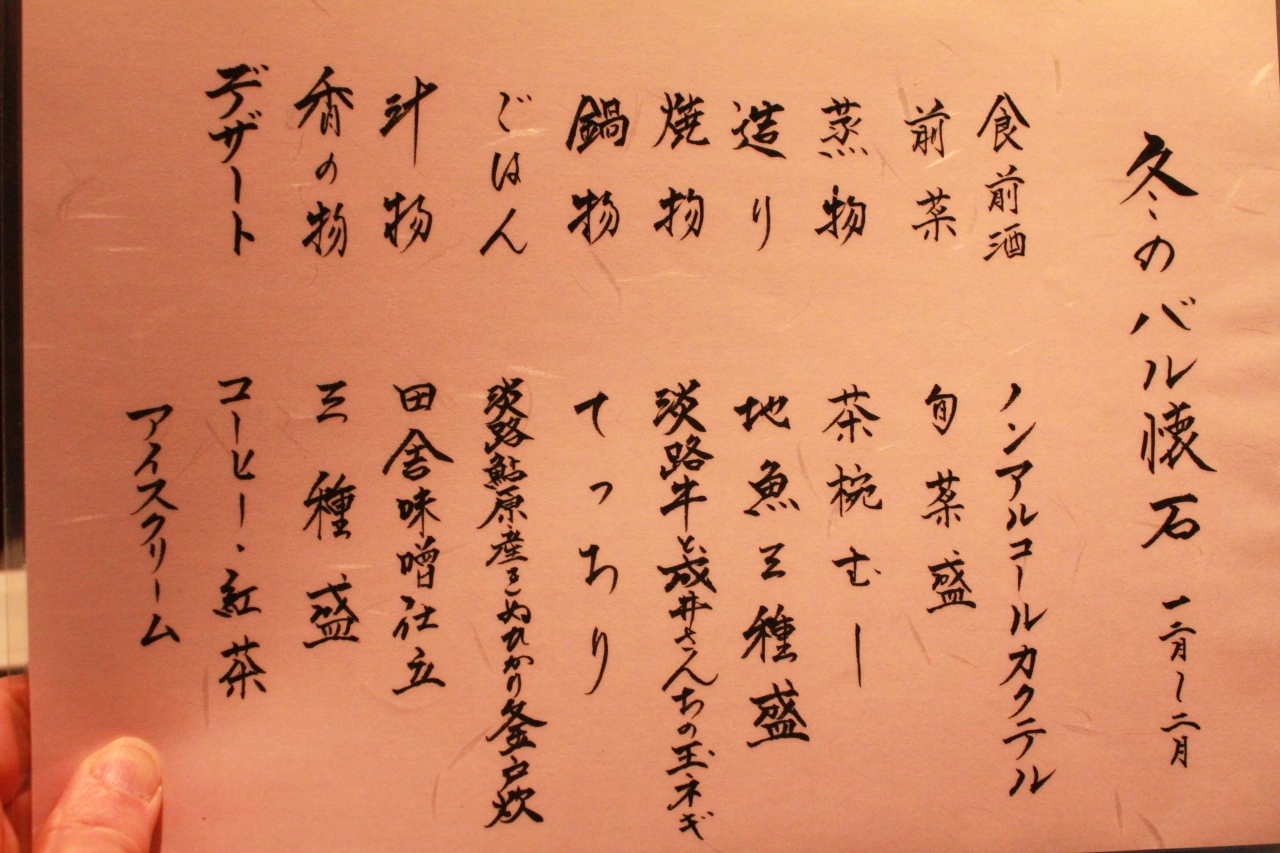 冬のバル懐石 一二月〜二月
食前酒 ノンアルコールカクテル
前菜 旬菜盛
蒸物 茶椀むし
造り 地魚三種盛
焼物 淡路牛と成井さんちの玉ネギ
鍋物 てっちり
ごはん 淡路鮎原産きぬひかり釜戸炊
汁物 田舎味噌仕立
香の物 三種盛
デザート コーヒー・紅茶
アイスクリーム